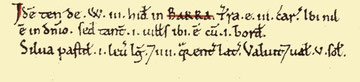 Idē ten de. W. III. hid in BARRA. Tra. ē. III. car. Ibi nil
ē in dnio. sed tant. I. uills ibi. ē cū. I. bord.
Silua past. I. leū lg. 7 IIII. quent lat. Valuit 7 ual. V. sol.